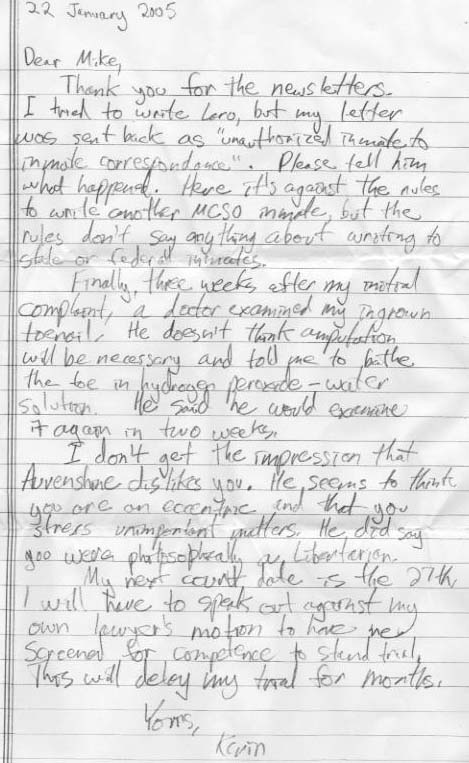 22 January 2005
Dear Mike,
Thank you for the newsletters.
I tried to write Lero, but my letter
was sent back as "unauthorized inmate to
inmate correspondance". Please tell him
what happened. Here it's against the rules
to write another MCSO inmate, but the
rules don't say anything about writing to
state or federal inmates.
Finally, three weeks after my initial
complaint, a doctor examined my ingrown
toenail. He doesn't think amputation
will be necessary and told me to bathe
the toe in hydrogen peroxide-water
solution. He said he would examine
it again in two weeks.
I don't get the impression that
Auvenshine dislikes you. He seems to think
you are an eccentric and that you
stress unimportant matters. He did say
you were philosophically a Libertarian.
My next court date is the 27th.
I will have to speak out against my
own lawyer's motion to have me
screened for competence to stand trial.
This will delay my trial for months.
Yours,
Kevin